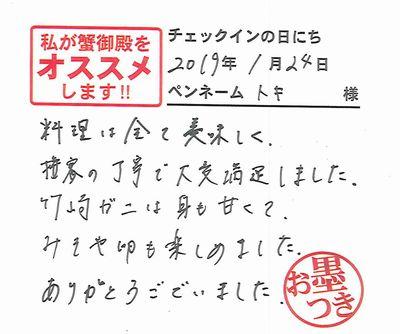 私が蟹御殿を
オススメ
します!!
チェックインの日にち
2019年 1月24日
ペンネーム トキ 様
料理は全て美味しく、
接客の丁寧で大変満足しました。
竹崎ガニは身も甘くて、
みそや卵も楽しめました。
ありがとうございました。
お墨つき